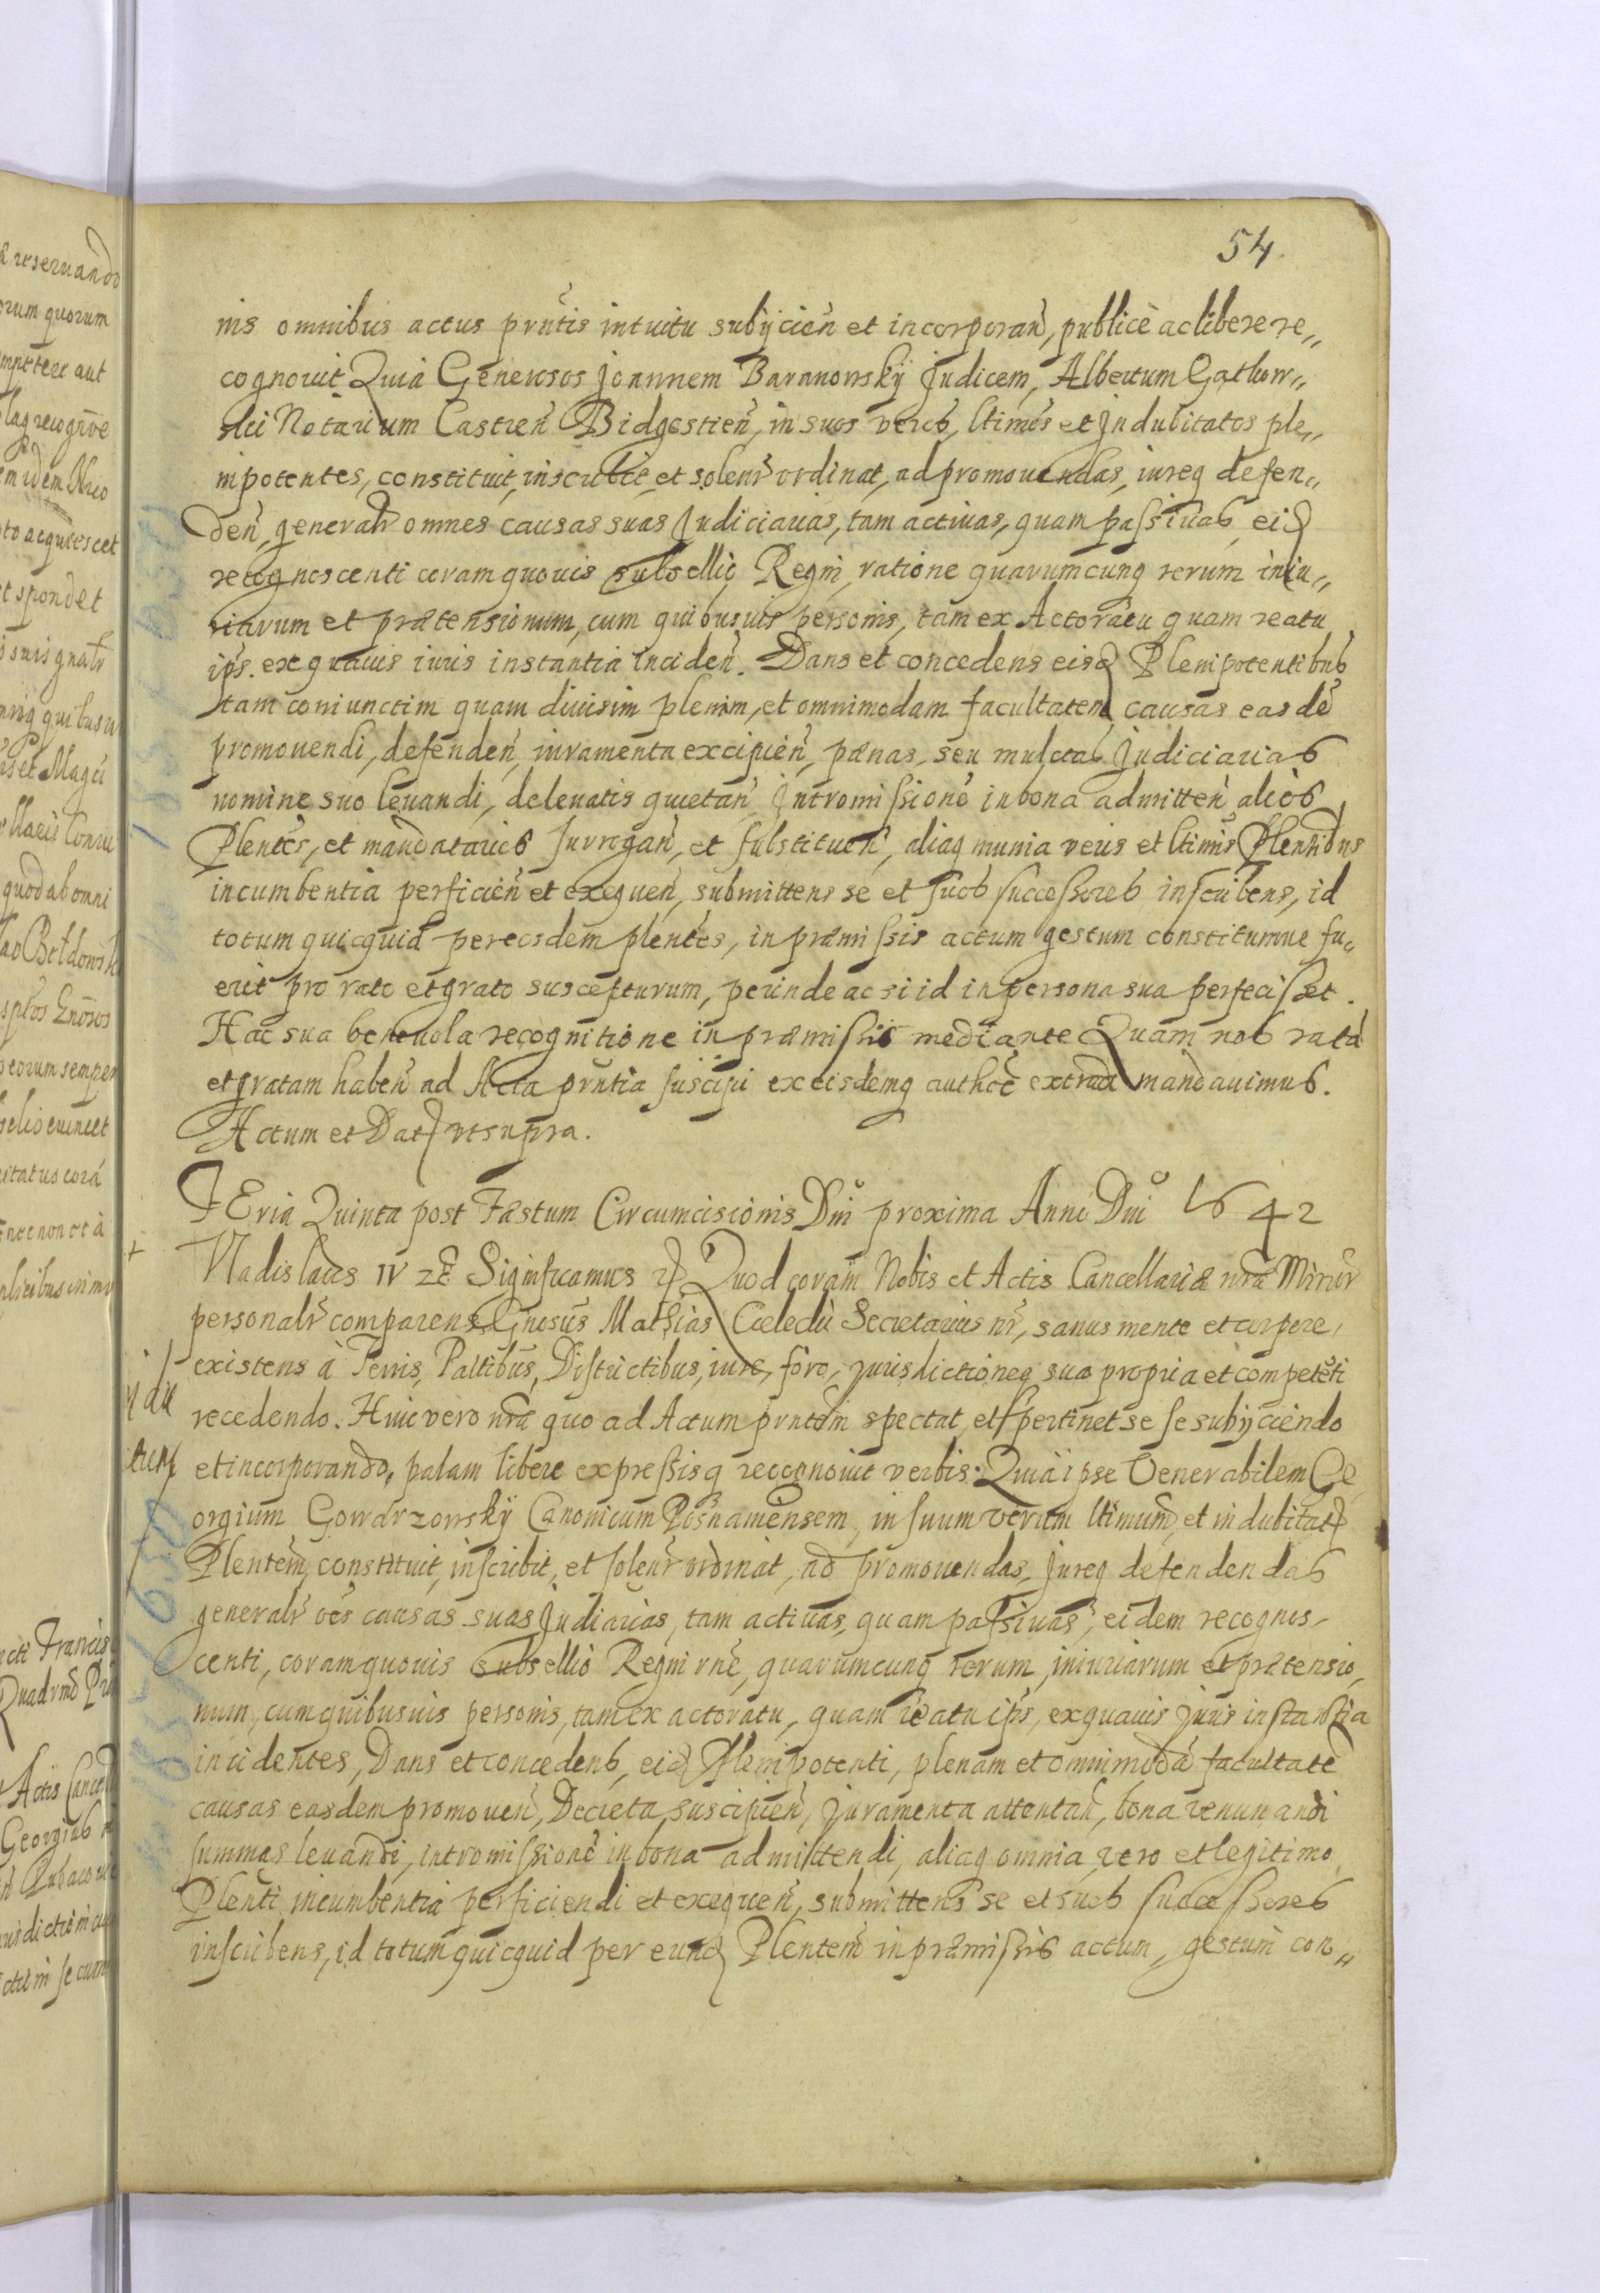 54.
nis omnibus actus prñtis intuitu subijcień et incorporań, publicè ac libere re„
cognovit Quia Generosos Joannem Baranowskÿ Judicem, Albertum Gathow„
ski Notarium Castreń Bidgostień, in suos veros, ltimos et Indubitatos ple„
nipotentes, constituit, inscribit, et solenr ordinat, ad promovendas, iureq defen„
deń, generalr omnes causas suas Judiciarias, tam activas, quam passivas, eid
recognoscenti coram quovis subsellio Regni, ratione quarumcunq rerum iniu„
riarum et prætensionum, cum quibusvis personis, tam ex Actoratu quam reatu
ips. ex quavis iuris instantia incideń. Dans et concedens eisd Plenipotentibus
tam coniunctim quam divisim plenam, et omnimodam facultatem causas easdē
promovendi, defendeń, iuramenta excipień, pænas, seu mulctas Judiciarias
nomine suo levandi, de levatis quietań, Intromissionē in bona admitteń alios
Plentes, et mandatarios surrogań, et substitueń, aliaq munia veris et ltimis Plentibus
incumbentia perficień et exequeń, submittens se et suos successores inscribens, id
totum quicquid per eosdem plentes, in præmissis actum gestum constitumve fu„
erit pro rato et grato suscepturum, perinde ac si id in persona sua perfecisset.
Hac sua benevola recognitione in præmissis mediante Quam nos ratā
et gratam habeń ad Acta prñtia suscipi ex eisdemq authcē extradi mandavimus.
Actum et Dat ut supra.
FEria Quinta post Fæstum Circumcisionis Dni proxima Anno Dni 1642
Vladislaus IV zc Significamus Quod coram Nobis et Actis Cancellariæ nræ Minor
personalr comparens Gnosus Mathias Secretarius nr, sanus mente et corpore,
existens à Terris, Pattibus, Districtibus, iure, foro, jurisdictioneq sua propria et competēti
recedendo. Huic vero nræ quo ad Actum prntem spectat, et pertinet se se subijciendo
et incorporando, palam libere expressisq recognovit verbis. Quia ipse Venerabilem Ge
orgium Gowarzowskÿ Canonicum Posnaniensem, in suum verum ltimum, et indubitat
Plentem, constituit, inscribit, et solenr ordinat, ad promovendas, Jureq defendendas
generalr oēs causas suas Judiarias, tam activas, quam passivas, eidem recognos-
centi, coram quovis subsellio Regni rnē, quarumcunq rerum, iniuriarum et prætensio,
num, cum quibusvis personis, tam ex actoratu, quam reatu ips, ex quavis juris instantia
incidentes, Dans et concedens, eid Plenipotenti, plenam et omnimodā facultatē
causas easdem promoveń, Decreta suscipień, juramenta attentań, bona venunandi
summas levandi, intromissionē in bona admittendi, aliaq omnia, vero et legitimo
Plenti incumbentia perficiendi et exequeń, submittens se et suos successores
inscribens, id totum quicquid per eund Plentem in præmissis actum, gestum con„